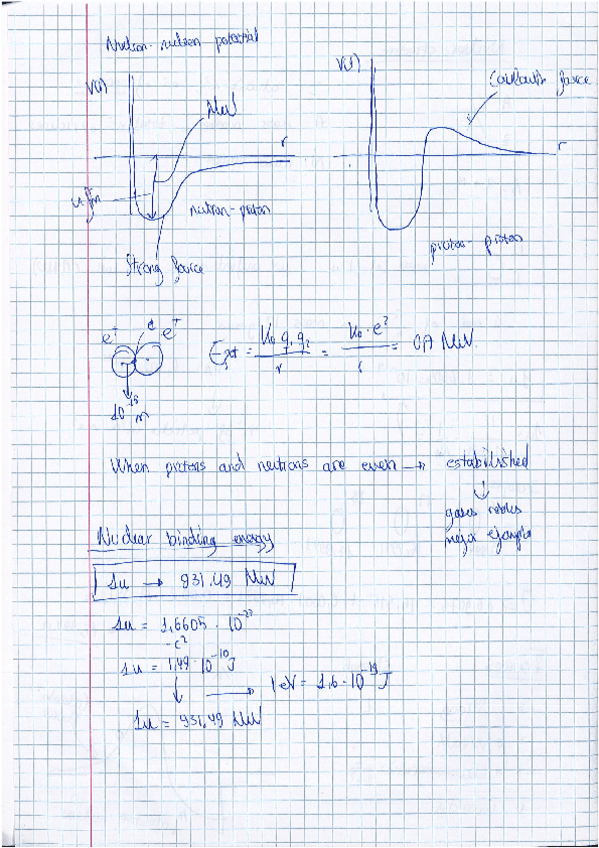 Nutron-nutron potential
V(r)
MeV
r
neutron-proton
Strong Force
V(r)
Coulomb force
r
proton-proton
e⁺ d e⁺
10⁻¹⁵ m
Epot = K₀ q₁ q₂ / r = K₀ · e² / r = MeV
When protons and neutrons are even → estabilished
↓
gases nobles
mejor ejemplo
Nuclear binding energy
1u → 931.49 MeV
1u = 1,6605 · 10⁻²⁷
·c²
1u = 1,49 · 10⁻¹⁰ J
↓ → 1 eV = 1,6 · 10⁻¹⁹ J
1u = 931,49 MeV